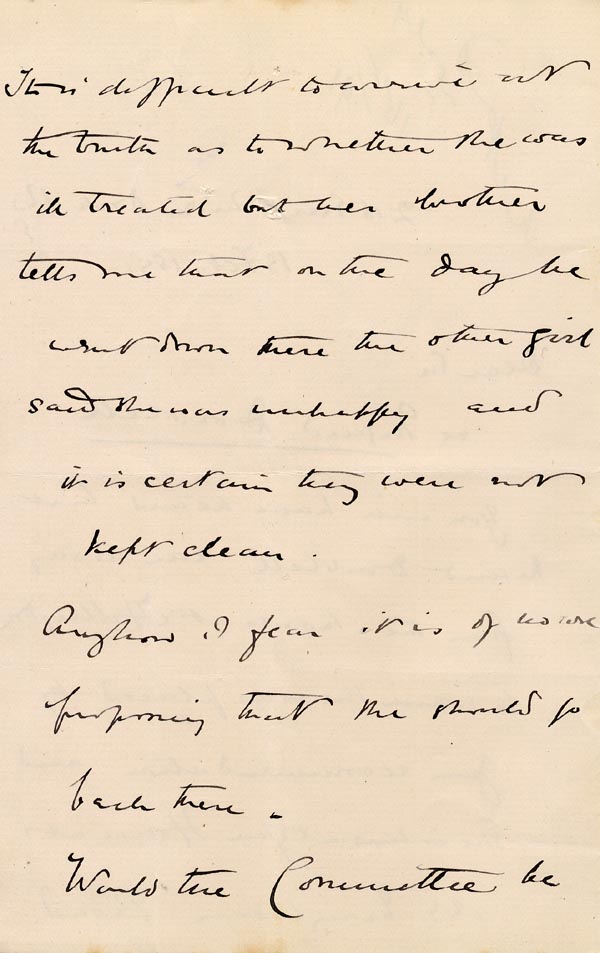 It is difficult to arrive at
the truth as to whether she was
ill treated but her brother
tells me that on the day he
went down there the other girl
said she was unhappy and
it is certain they were not
kept clean.
Anyhow I fear it is of no use
proposing that she should go
back there.
Would the Committee be